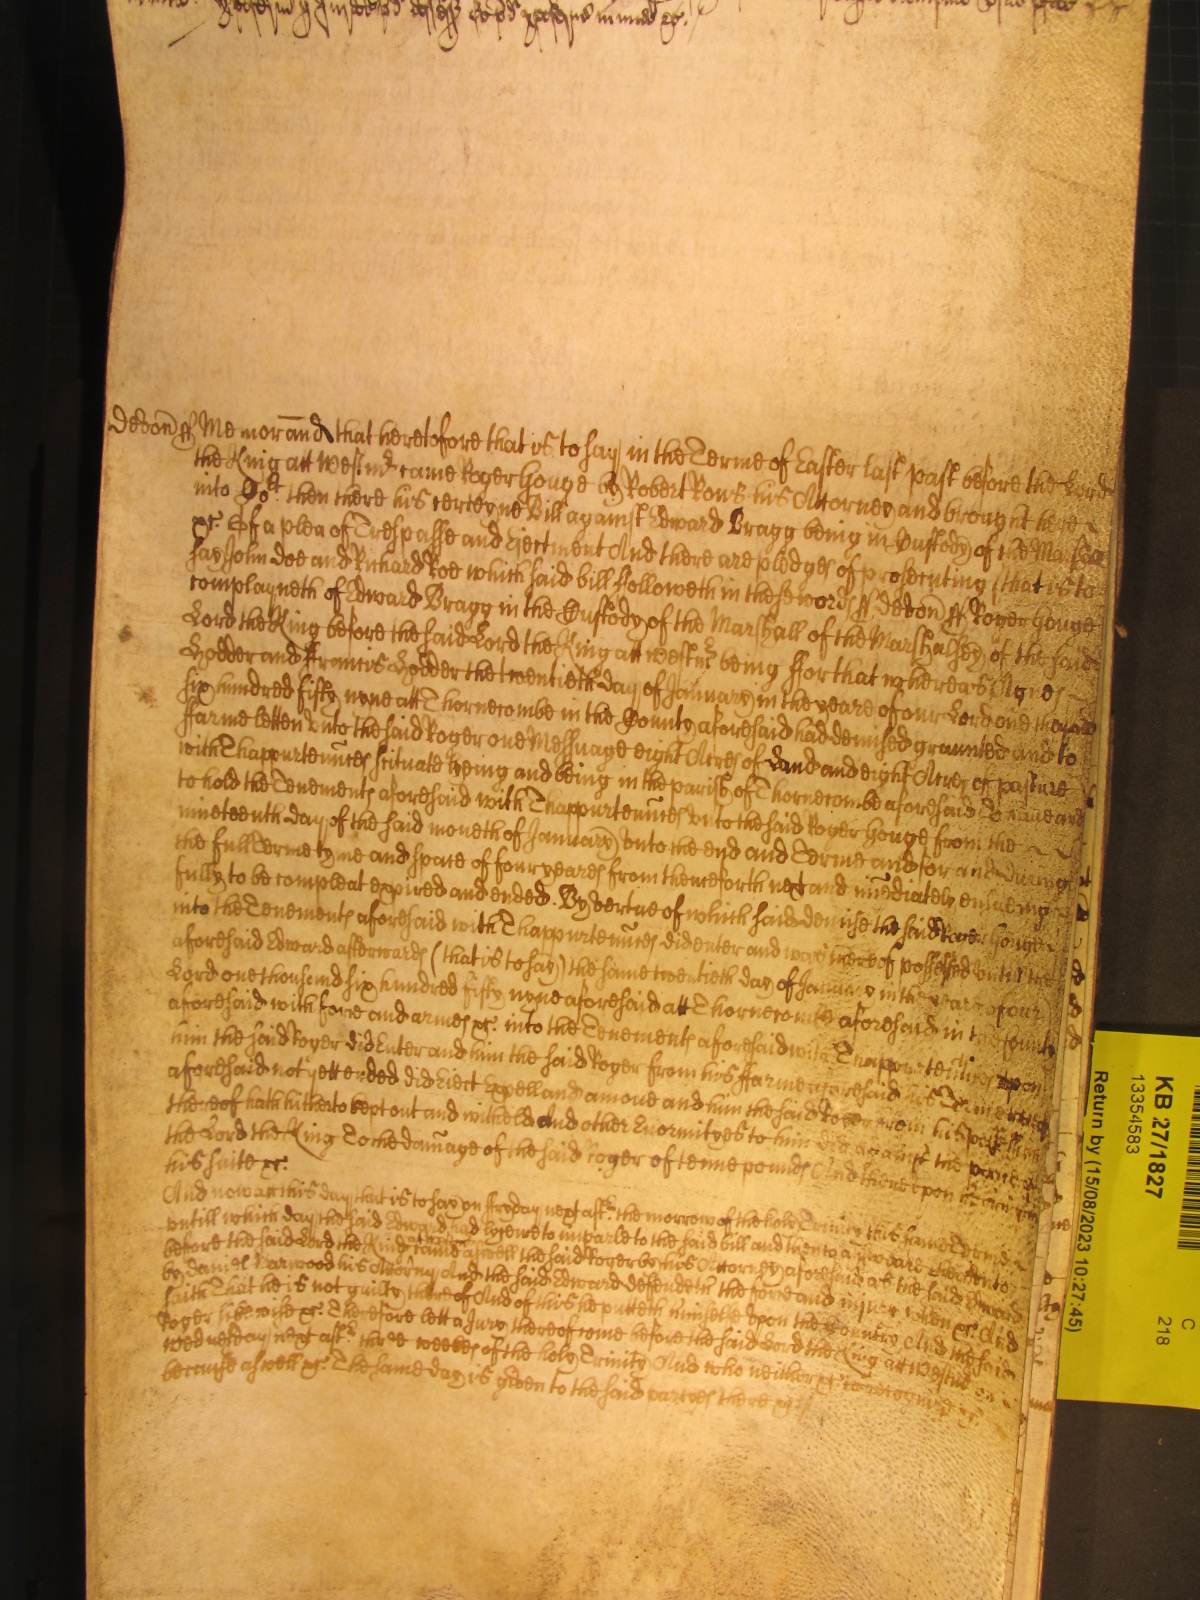 Devon ss Memorand that heretofore that is to say in the Terme of Easter last past before the Lord
the King att Westmr came Roger Gouge by Robert Rows his Attorney and brought here
into Cort then there his certeyne Bill against Edward Bragg being in Custody of the Marshall
&c. Of a plea of Trespasse and Ejectment And there are pledges of prosecuting (that is to
say John Doe and Richard Roe which said bill Followeth in these words ss Devon ss Roger Gouge
complayneth of Edward Bragg in the Custody of the Marshall of the Marshalsey of the said
Lord the King before the said Lord the King att Westmr being ffor that whereas Agnes
Hodder and ffrancis Hodder the twentieth day of January in the yeare of our Lord one thousand
six hundred fifty nyne att Thornecombe in the County aforesaid had demised graunted and to
ffarme letten vnto the said Roger one Messuage eight Acres of Land and eight Acres of pasture
with Thappurtennces scituate lyeing and being in the parish of Thornecombe aforesaid To have and
to hold the Tenements aforesaid with Thappurtennces vnto the said Roger Gouge from the
nineteenth day of the said moneth of January vnto the end and Terme and for and during
the full Terme tyme and space of four yeares from thenceforth next and imediately ensueing
fully to be compleat expired and ended. By vertue of which said demise the said Roger Gouge
into the Tenements aforesaid with Thappurtennces did enter and was thereof possessed vntill the
aforesaid Edward afterwards (that is to say) the same twentieth day of January in the yeare of our
Lord one thousand six hundred fifty nyne aforesaid att Thornecombe aforesaid in the County
aforesaid with force and armes &c. into the Tenements aforesaid with Thappurtennces vpon
him the said Roger did Enter and him the said Roger from his ffarme aforesaid his Terme
aforesaid not yett ended did Eiect Expell and amove and him the said Roger from his possession
thereof hath hitherto kept out and witheld And other Enormityes to him did against the peace of
the Lord the King To the damage of the said Roger of tenne pounds And thereupon he
his suite &c.
And now att this day that is to say on ffryday next aftr the morrow of the holy Trinity this same Terme
vntill which day the said Edward had lycence to imparle to the said bill and then to answeare &c
before the said Lord the King att Westmr came aswell the said Roger by his Attorney aforesaid as the said Edward
by Daniel Harwood his Attorny And the said Edward defendeth the force and iniury when &c. And
saith That he is not guilty thereof And of this he putteth himselfe vpon the Country And the said
Roger likewise &c. Therefore lett a Jury thereof come before the said Lord the King att Westmr on
Wednesday next aftr three weekes of the holy Trinity And who neither &c. to recognize &c.
because aswell &c. The same day is given to the said partyes there &c.
Return by (15/08/2023 10:27:45)
13354583
KB 27/1827
C
218